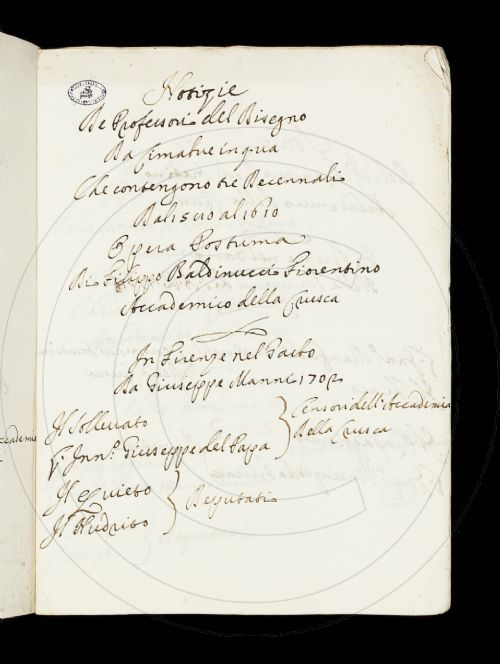 Notizie
De Professori del Disegno
Da Cimabue in qua
Che contengono tre Decennali
Dal 1580 al 1610
Opera Postuma
Di Filippo Baldinucci Fiorentino
Accademico della Crusca
In Firenze nel Garbo
Da Giuseppe Manni 1702
Il Sollevato
Giuseppe del Papa
Censori dell'Accademia
Della Crusca
Deputati